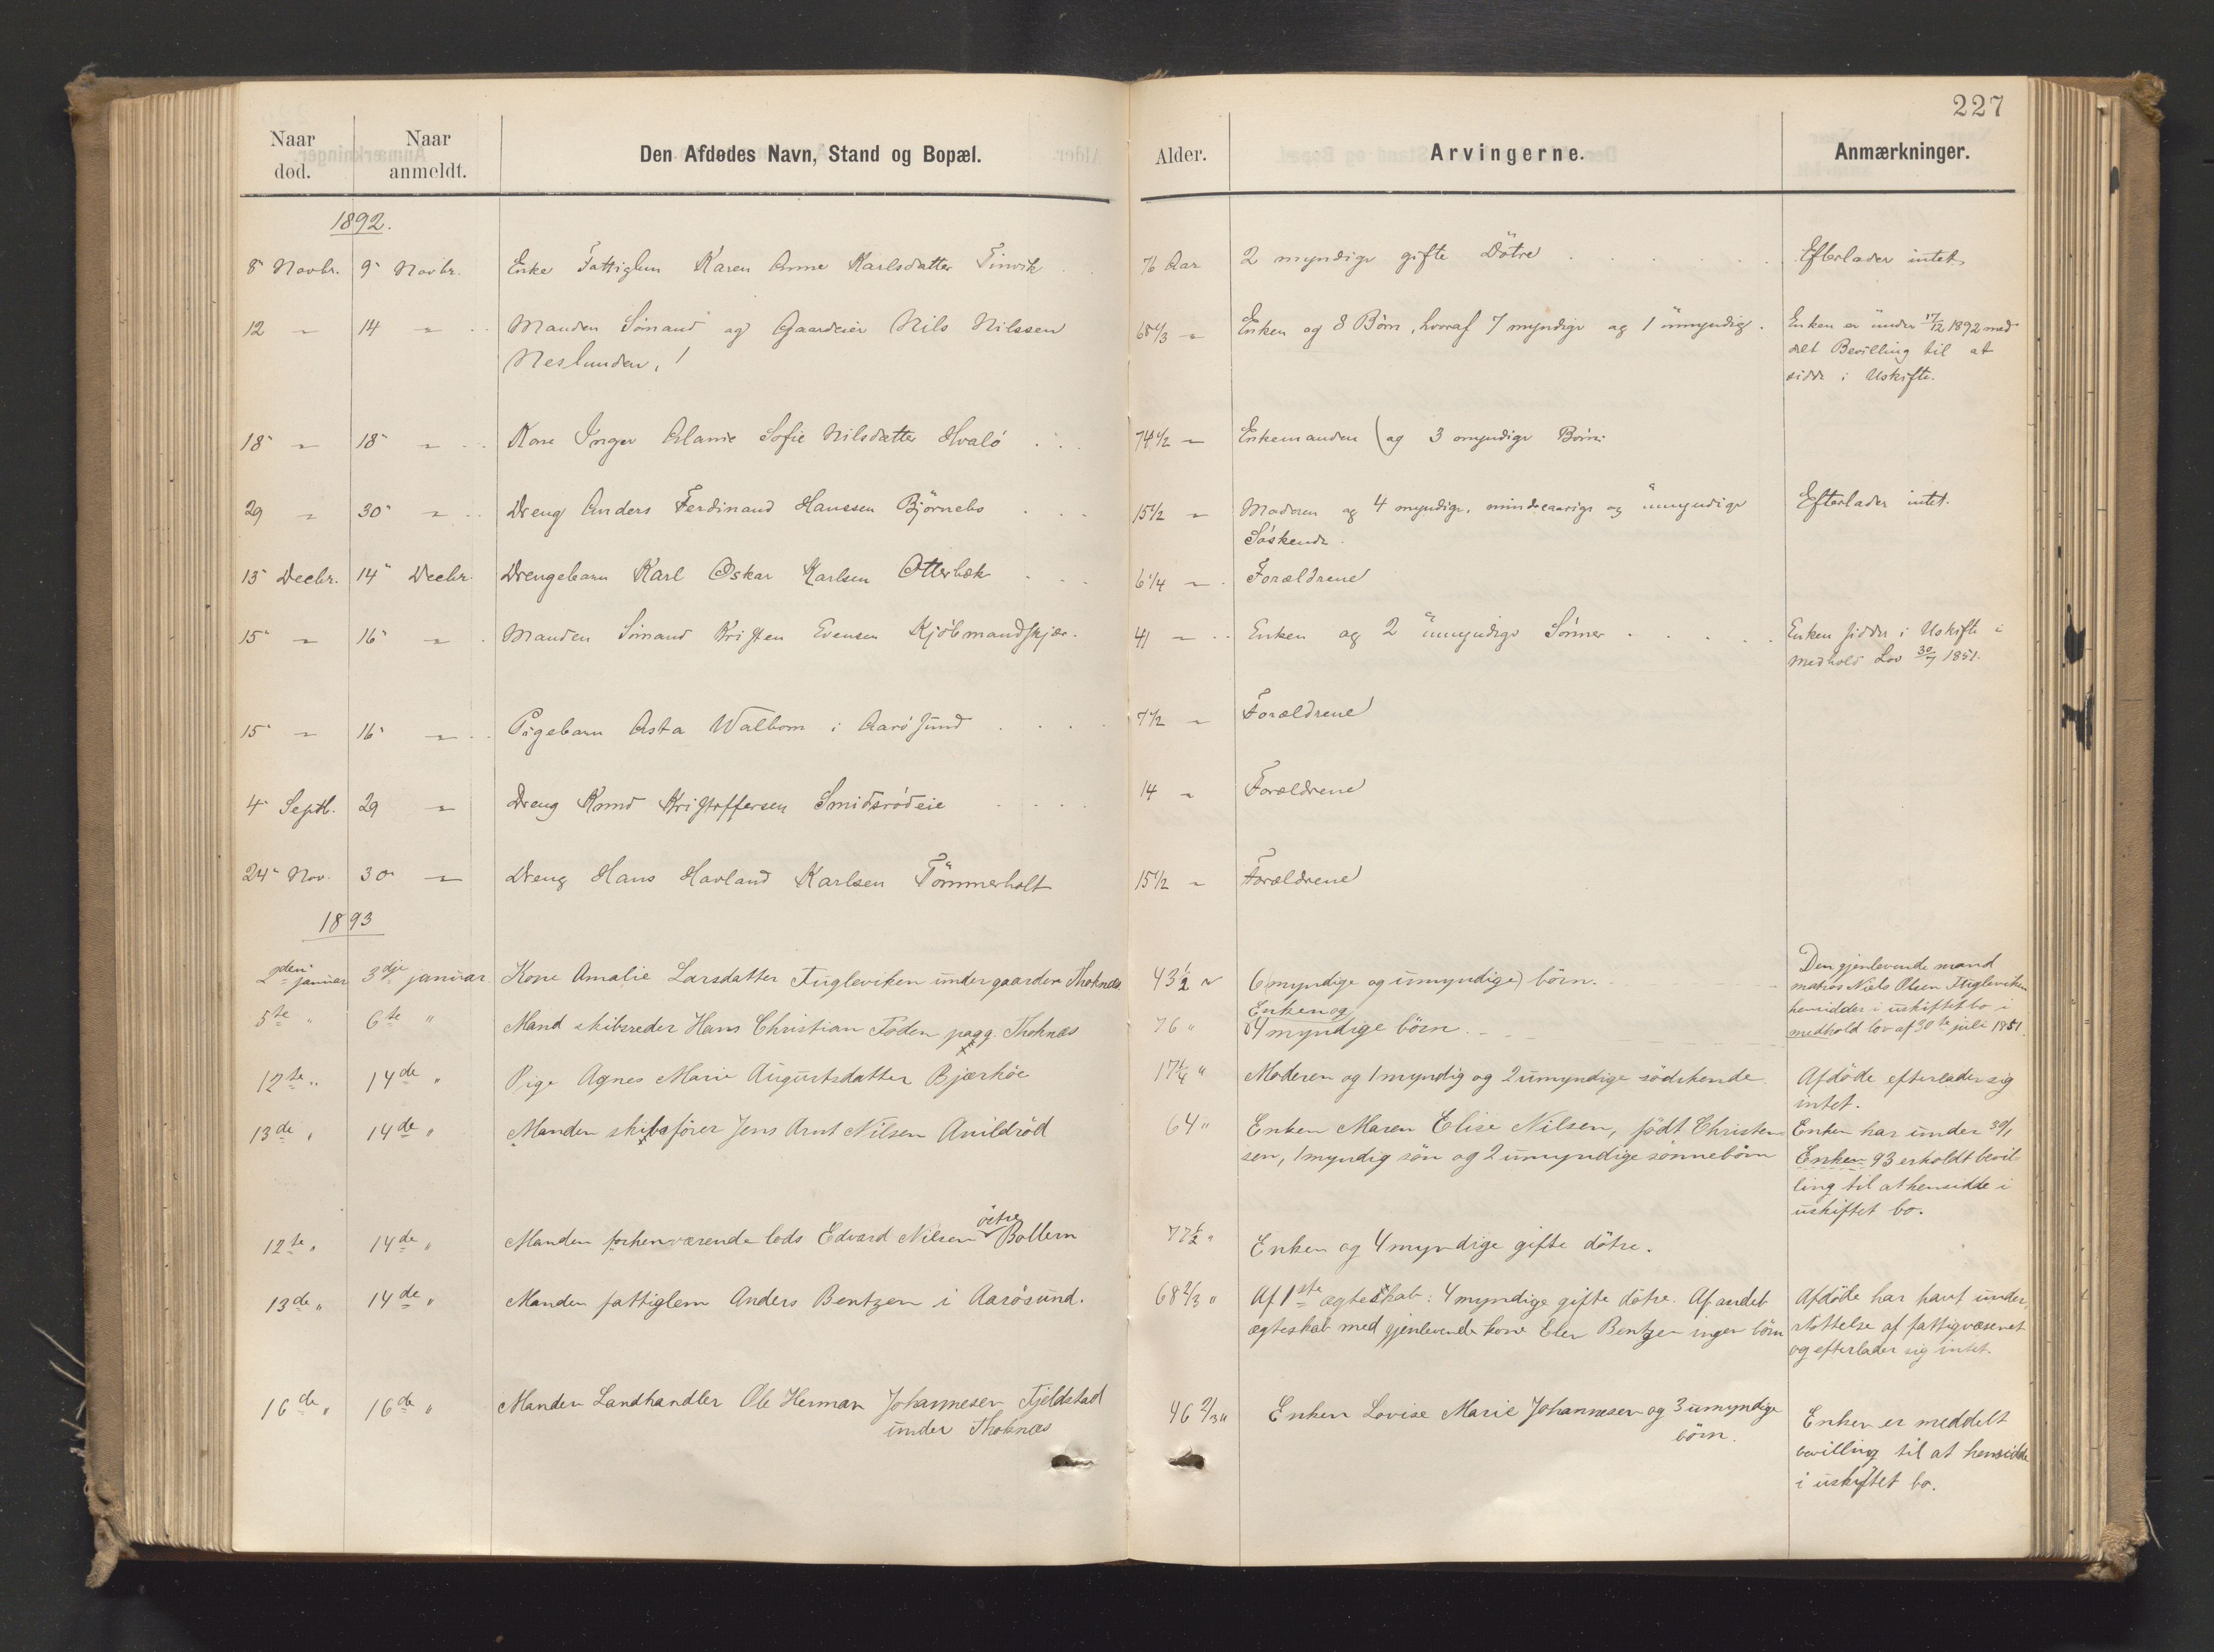 227
Naar død. Naar anmeldt. Den Afdødes Navn, Stand og Bopæl. Alder. Arvingerne. Anmærkninger.
1892.
8 Novbr. 9 Novbr. Enke Fattiglem Karen Anne Karlsdatter Finvik 76 Aar 2 myndige gifte Døtre Efterlader intet
12 " 14 " Manden Sømand og Gaardeier Nils Nilssen 68 1/3 " Enken og 8 Børn, hvoraf 7 myndige og 1 umyndig. Enken er under 17/12 1892 med
Neslunden, delt Bevilling til at
sidde i Uskifte.
18 " 18 " Kone Inger Sofie Nilsdatter Hvalö 74 1/2 " Enkemanden (og 3 omyndige Børn
29 " 30 " Dreng Anders Ferdinand Hanssen Björnebo 15 1/2 " Moderen og 4 myndige, mindreaarige og umyndige Efterlader intet.
Søskende.
13 Decbr. 14 Decbr. Drengebarn Karl Oskar Karlsen Otterbek 6 1/4 " Forældrene
15 " 16 " Manden Sömand Kristen Evensen Kjöbmandskjær. 41 " Enken og 2 umyndige Sønner Enken sidder i Uskifte i
medhold Lov 30/7 1851.
15 " 16 " Pigebarn Asta Walbom i Aarösund 7 1/2 " Forældrene
4 Septb. 29 " Dreng Knud Kristoffersen Smidsrödeie 14 " Forældrene
24 Nov. 30 " Dreng Hans Havland Karlsen Tömmerholt 15 1/2 " Forældrene
1893
2den januar 3dje januar Kone Amalie Larsdatter Fugleviken under gaarden Thoknæs 43 1/2 " 6 myndige og umyndige börn. Den gjenlevende mand
matros Niels Olsen Fugleviken
hensidder i uskiftet bo i
medhold lov af 30te juli 1851.
5te " 6te " Mand skibsreder Hans Christian Foden pagg. Thoknæs 76 " Enken og
4 myndige börn.
12te " 14de " Pige Agnes Marie Augustsdatter Bjærköe 17 1/4 " Moderen og 1 myndig og 2 umyndige södskende Afdöde efterlader sig
intet.
13de " 14de " Manden skibsförer Jens Arnt Nilsen Avildröd 64 " Enken Maren Elise Nilsen, födt Christen Enken har under 30/1
sen, 1 myndig sön og 2 umyndige sönnebörn Enken 93 erholdt bevil
ling til at hensidde i
uskiftet bo.
12te " 14de " Manden forhenværende lods Edvard Nilsen östre Bollern 77 1/2 " Enken og 4 myndige gifte dötre.
13de " 14de " Manden fattiglem Anders Bentzen i Aarösund. 68 2/3 " Af 1ste ægteskab: 4 myndige gifte dötre. Af andet Afdöde har havt under
ægteskab med gjenlevende kone Elen Bentzen ingen börn støttelse af fattigvæsenet
og efterlader sig intet.
16de " 16de " Manden Landhandler Ole Herman Johannesen Fjeldstad 46 2/3 " Enken Lovise Marie Johannesen og 3 umyndige Enken er meddelt
under Thoknæs börn. bevilling til at hensidde
i uskiftet bo.